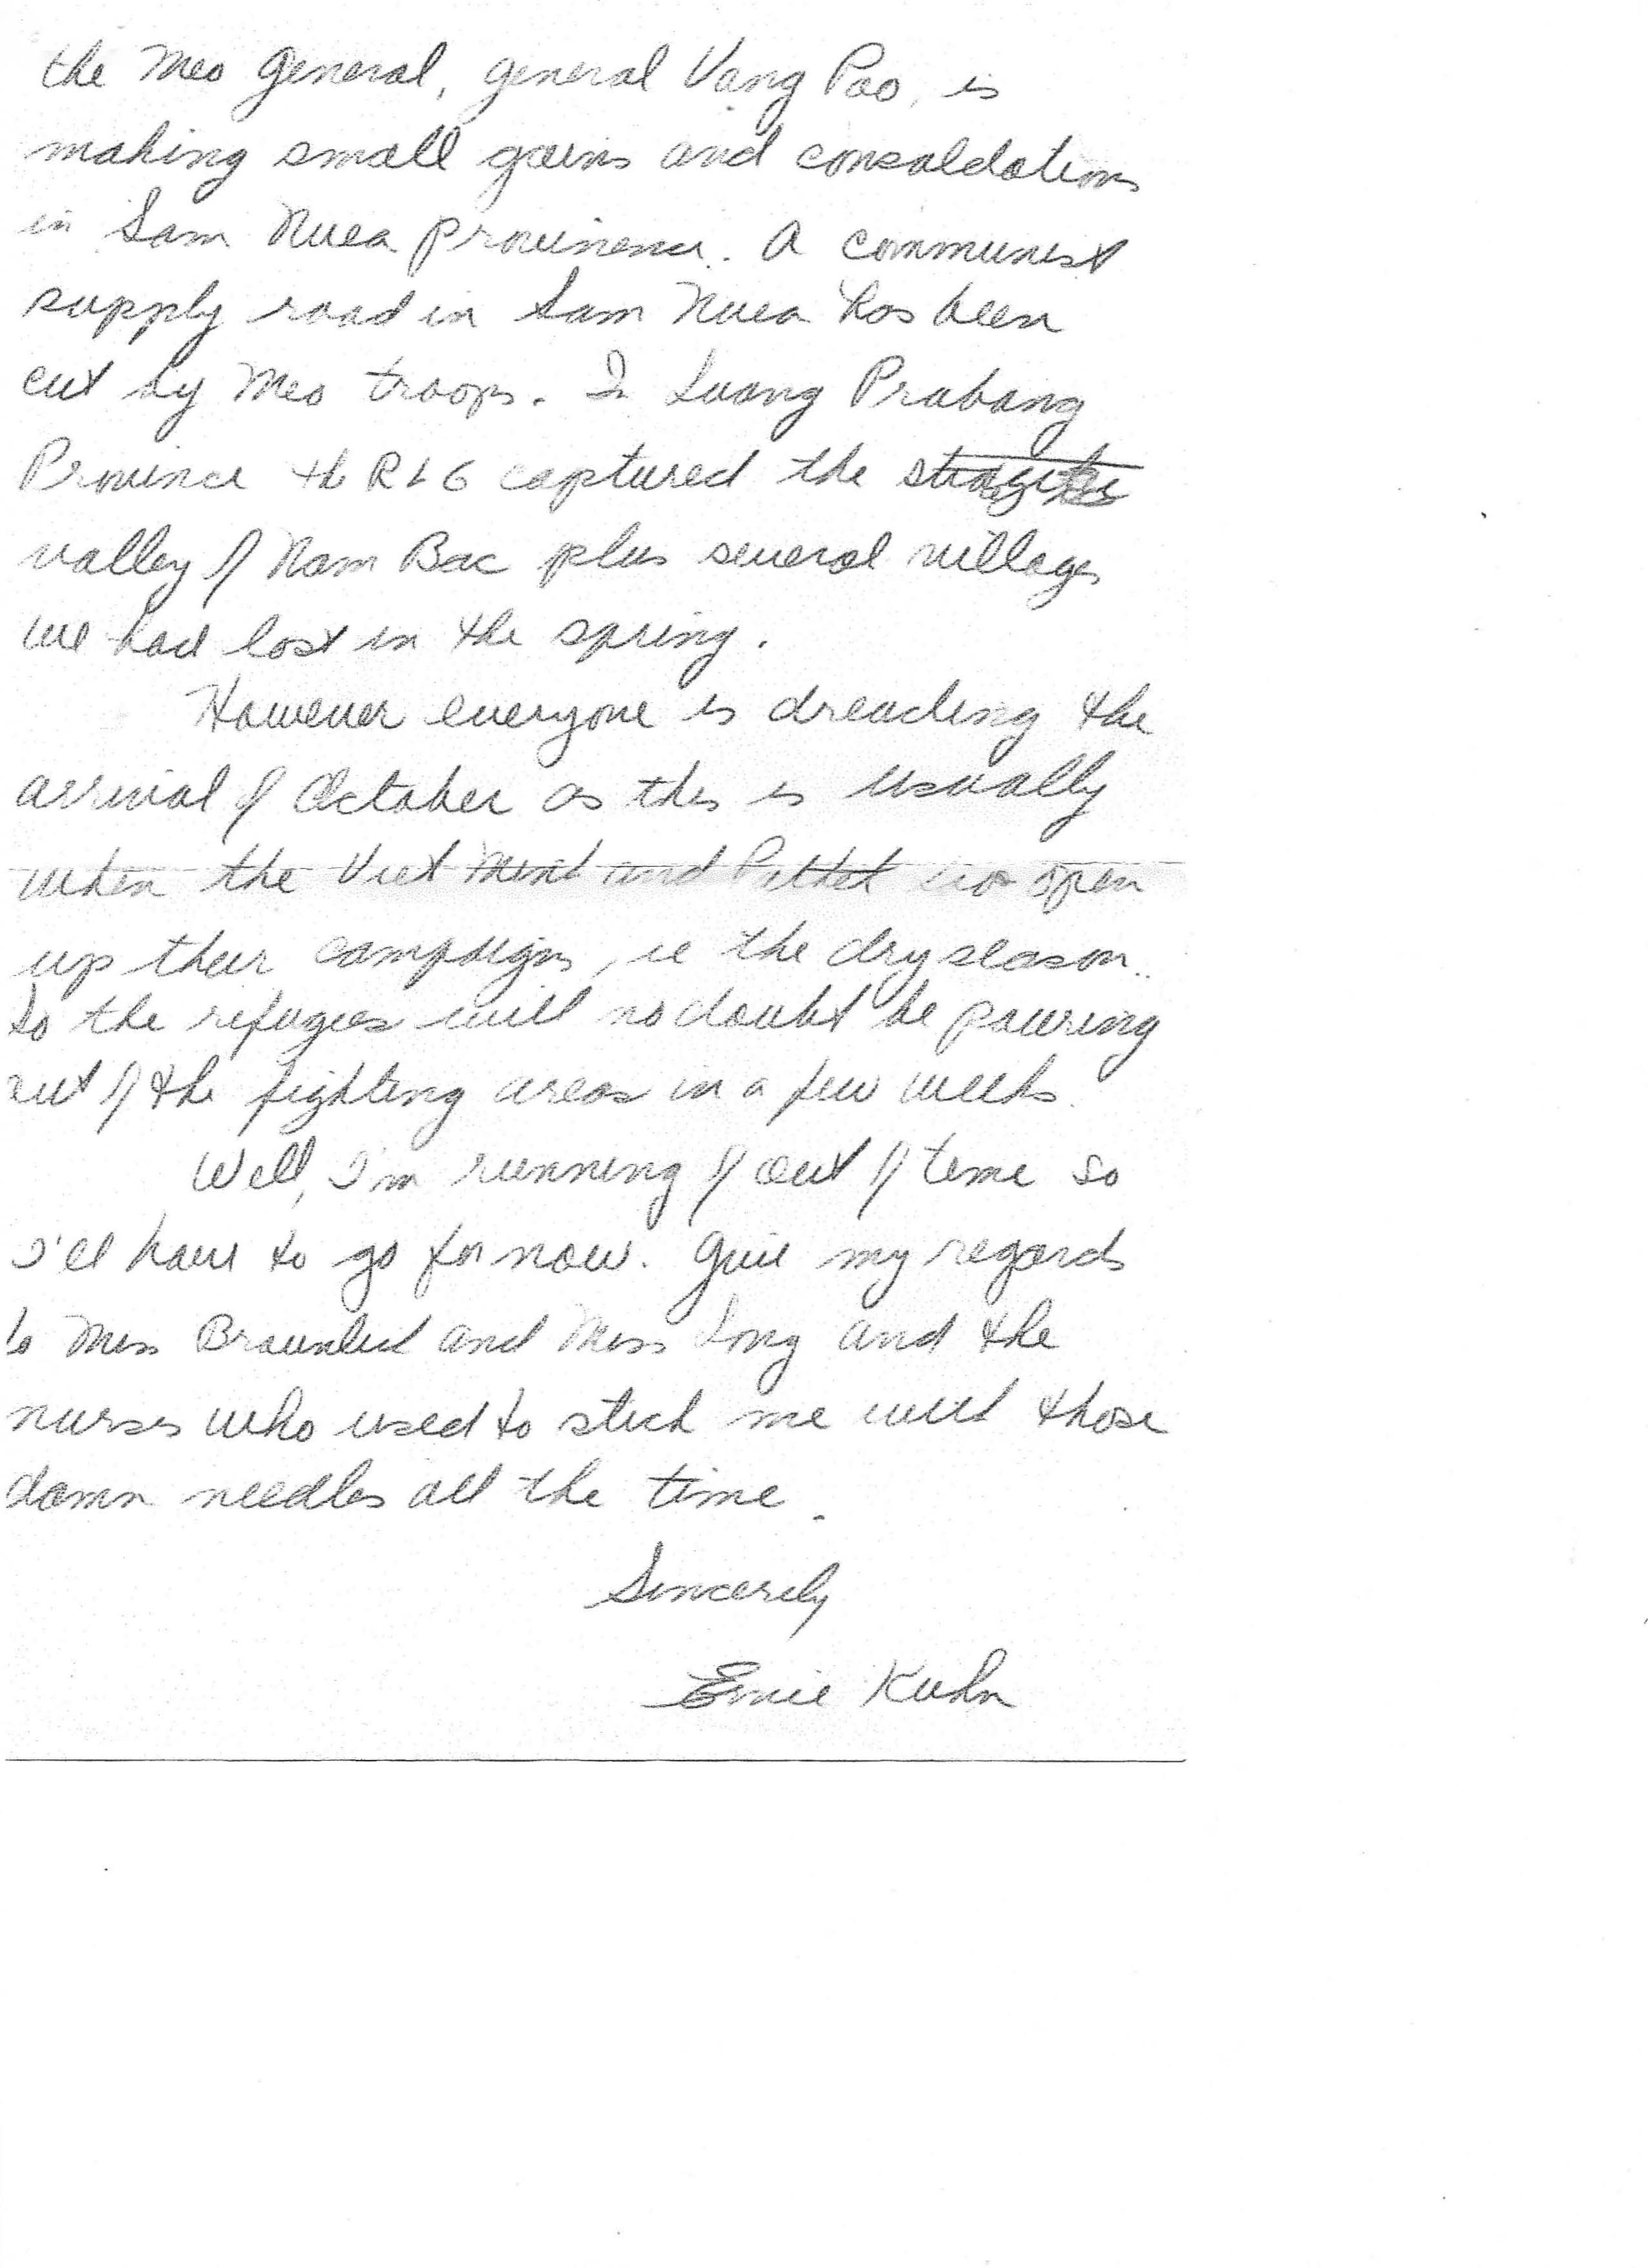 the Meo General, General Vang Pao, is
making small gains and consoldations
in Sam Nuea Provinence. A communist
supply road in Sam Nuea has been
cut by Meo troops. In Luang Prabang
Province the RLG captured the
valley of Nam Bac plus several villages
we had lost in the spring.
However everyone is dreading the
arrival of October as this is usually
when the Viet Minh and Pathet Lao open
up their campaigns, ie the dry season.
So the refugees will no doubt be pouring
out of the fighting areas in a few weeks.
Well, I'm running of out of time so
I'll have to go for now. Give my regards
to Miss and Miss Long and the
nurses who used to stick me with those
damn needles all the time.
Sincerely
Ernie Kuhn